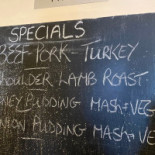 SPECIALS
BEEF PORK - TURKEY
SHOULDER LAMB ROAST
PUDDING MASH + VEG
PUDDING MASH + VE